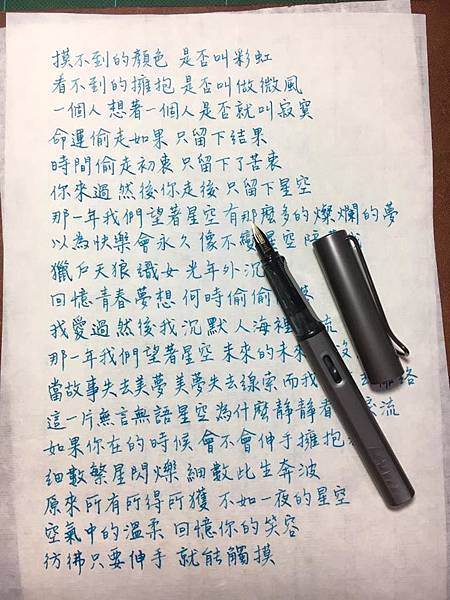 摸不到的顏色 是否叫彩虹
看不到的擁抱 是否叫做微風
一個人 想著一個人 是否就叫寂寞
命運偷走如果 只留下結果
時間偷走初衷 只留下了苦衷
你來過 然後你走後 只留下星空
那一年我們望著星空 有那麼多的燦爛的夢
以為快樂會永久 像不變星空 陪
獵戶天狼 織女 光年外沉
回憶青春夢想 何時偷偷
我愛過 然後我沉默 人海裡 流
那一年我們望著星空 未來的未來
當故事失去美夢 美夢失去線索 而我
這一片無言無語星空 為什麼靜靜看 流
如果你在的時候 會不會伸手擁抱
細數繁星閃爍 細數此生奔波
原來所有所得所獲 不如一夜的星空
空氣中的溫柔 回憶你的笑容
彷彿只要伸手 就能觸摸